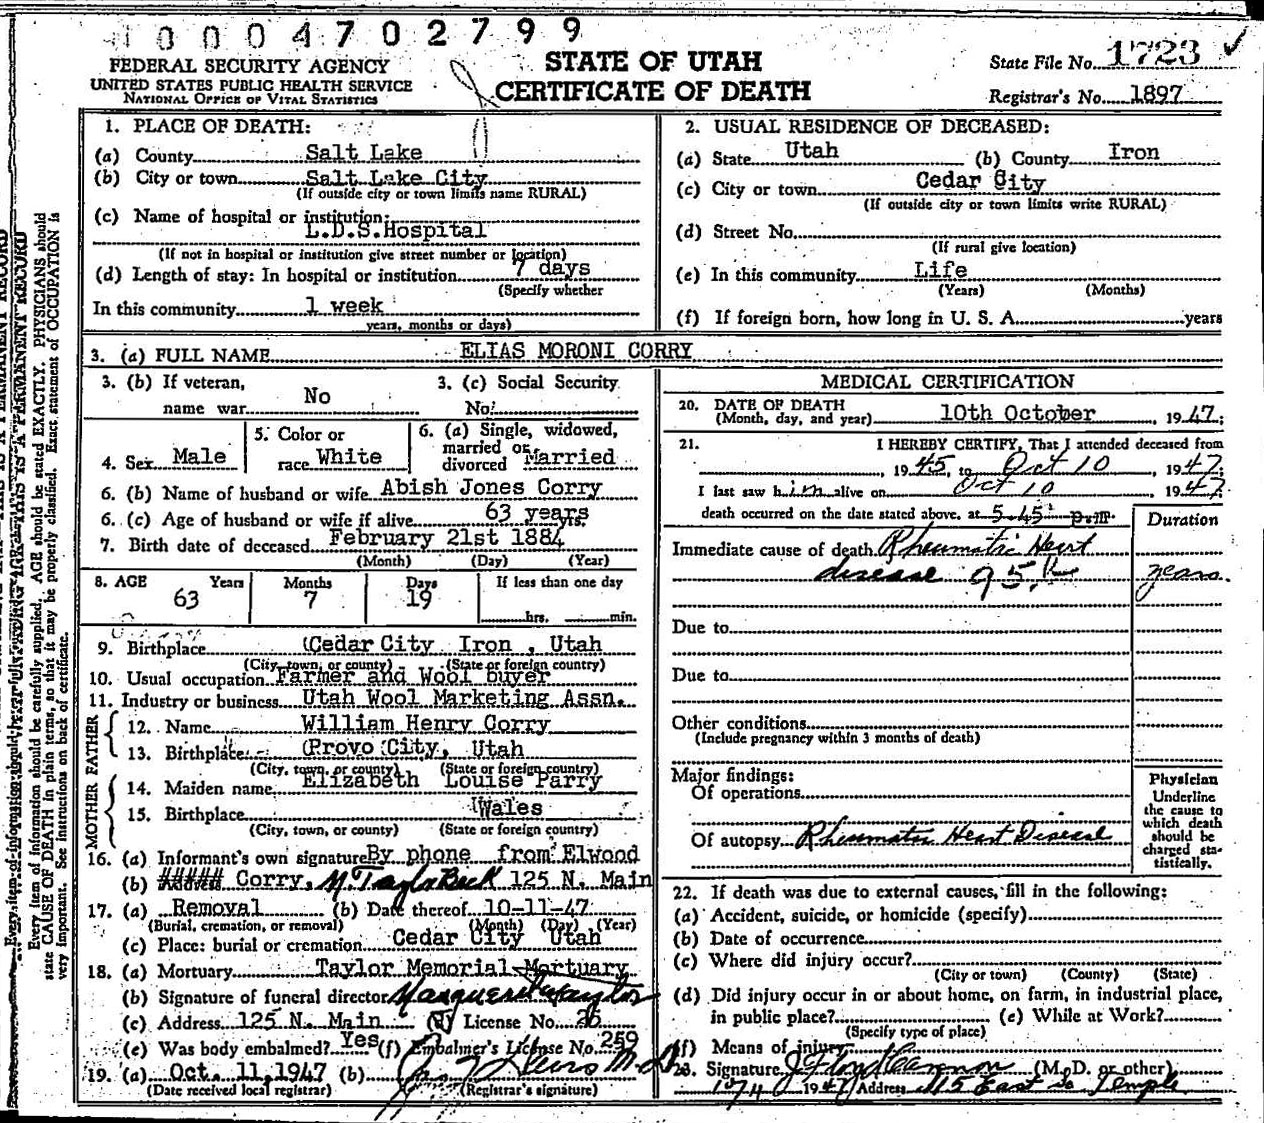 0004702799
FEDERAL SECURITY AGENCY
UNITED STATES PUBLIC HEALTH SERVICE
NATIONAL OFFICE OF VITAL STATISTICS
STATE OF UTAH
CERTIFICATE OF DEATH
State File No. 1723
Registrar's No. 1897
1. PLACE OF DEATH:
(a) County Salt Lake
(b) City or town Salt Lake City
(If outside city or town limits name RURAL)
(c) Name of hospital or institution:
L.D.S.Hospital
(If not in hospital or institution give street number or location)
(d) Length of stay: In hospital or institution 7 days
(Specify whether
In this community 1 week
years, months or days)
2. USUAL RESIDENCE OF DECEASED:
(a) State Utah (b) County Iron
(c) City or town Cedar City
(If outside city or town limits write RURAL)
(d) Street No.
(If rural give location)
(e) In this community Life
(Years) (Months)
(f) If foreign born, how long in U. S. A. years
3. (a) FULL NAME ELIAS MORONI CORRY
3. (b) If veteran, name war No
3. (c) Social Security No.
4. Sex Male
5. Color or race White
6. (a) Single, widowed, married or divorced Married
6. (b) Name of husband or wife Abish Jones Corry
6. (c) Age of husband or wife if alive 63 years yrs.
7. Birth date of deceased February 21st 1884
(Month) (Day) (Year)
8. AGE Years Months Days If less than one day
63 7 19 hrs. min.
9. Birthplace Cedar City Iron , Utah
(City, town, or county) (State or foreign country)
10. Usual occupation Farmer and Wool buyer
11. Industry or business Utah Wool Marketing Assn.
FATHER
12. Name William Henry Corry
13. Birthplace Provo City, Utah
(City, town, or county) (State or foreign country)
MOTHER
14. Maiden name Elizabeth Louise Parry
15. Birthplace Wales
(City, town, or county) (State or foreign country)
16. (a) Informant's own signature By phone from Elwood
(b) ##### Corry, M. Taylor Beck 125 N. Main
17. (a) Removal (b) Date thereof 10-11-47
(Burial, cremation, or removal) (Month) (Day) (Year)
(c) Place: burial or cremation Cedar City Utah
18. (a) Mortuary Taylor Memorial Mortuary
(b) Signature of funeral director
(c) Address 125 N. Main (d) License No. 26
(e) Was body embalmed? Yes (f) Embalmer's License No. 259
19. (a) Oct. 11,1947 (b)
(Date received local registrar) (Registrar's signature)
MEDICAL CERTIFICATION
20. DATE OF DEATH
(Month, day, and year) 10th October 1947;
21. I HEREBY CERTIFY, That I attended deceased from
, 1945, to Oct 10, 1947;
I last saw him alive on Oct 10 1947
death occurred on the date stated above, at 5.45 p.m.
Duration
Immediate cause of death Rheumatic Heart
disease 95. years.
Due to
Due to
Other conditions
(Include pregnancy within 3 months of death)
Major findings:
Of operations
Of autopsy Rheumatic Heart Disease
Physician
Underline
the cause to
which death
should be
charged sta-
tistically.
22. If death was due to external causes, fill in the following:
(a) Accident, suicide, or homicide (specify)
(b) Date of occurrence
(c) Where did injury occur?
(City or town) (County) (State)
(d) Did injury occur in or about home, on farm, in industrial place,
in public place? (e) While at Work?
(Specify type of place)
(f) Means of injury
23. Signature (M.D. or other)
1947 Address 115 East So Temple
Every item of information should be carefully supplied. AGE should be stated EXACTLY. PHYSICIANS should
state CAUSE OF DEATH in plain terms, so that it may be properly classified. Exact statement of OCCUPATION is
very important. See instructions on back of certificate.